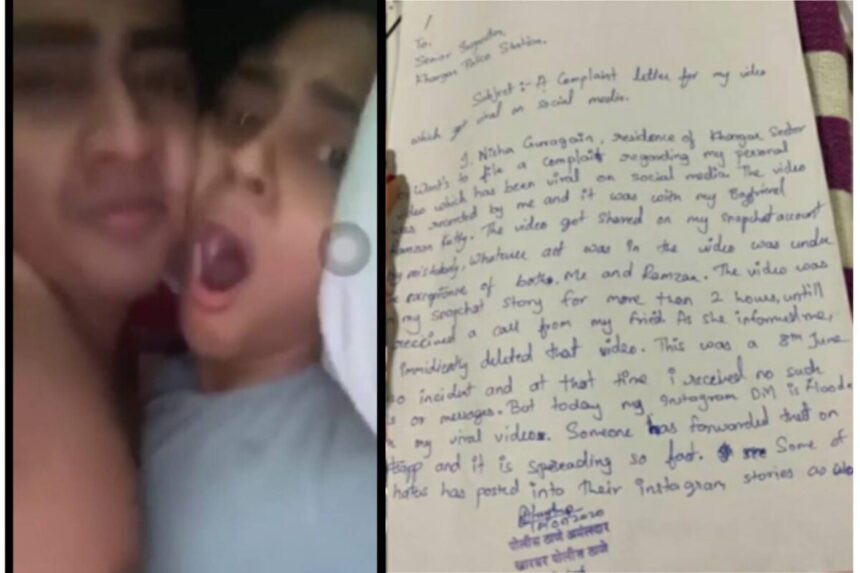 To,
Senior
Kharghar Police Station.
Subject :- A Complaint letter for my video
which got viral on social media.
I, Nisha Guragain, residence of Kharghar Sector
Wants to file a complaint regarding my personal
video which has been viral on social media. The video
was recorded by me and it was with my Boyfriend
The video got shared on my snapchat account
by mistakenly, Whatever act was in the video was under
acceptance of both, Me and Ramzan. The video was
my snapchat story for more than 2 hours, untill
received a call from my friend As she informed me,
Immidictly deleted that video. This was a 8th June
incident and at that time i received no such
or messages. But today my Instagram DM is flood
my viral videos. Someone has forwarded that on
and it is spreading so fast. Some of
haters has posted into their instagram stories as
2020
पोलीस ठाणे अंमलदार
खारघर पोलीस ठाणे